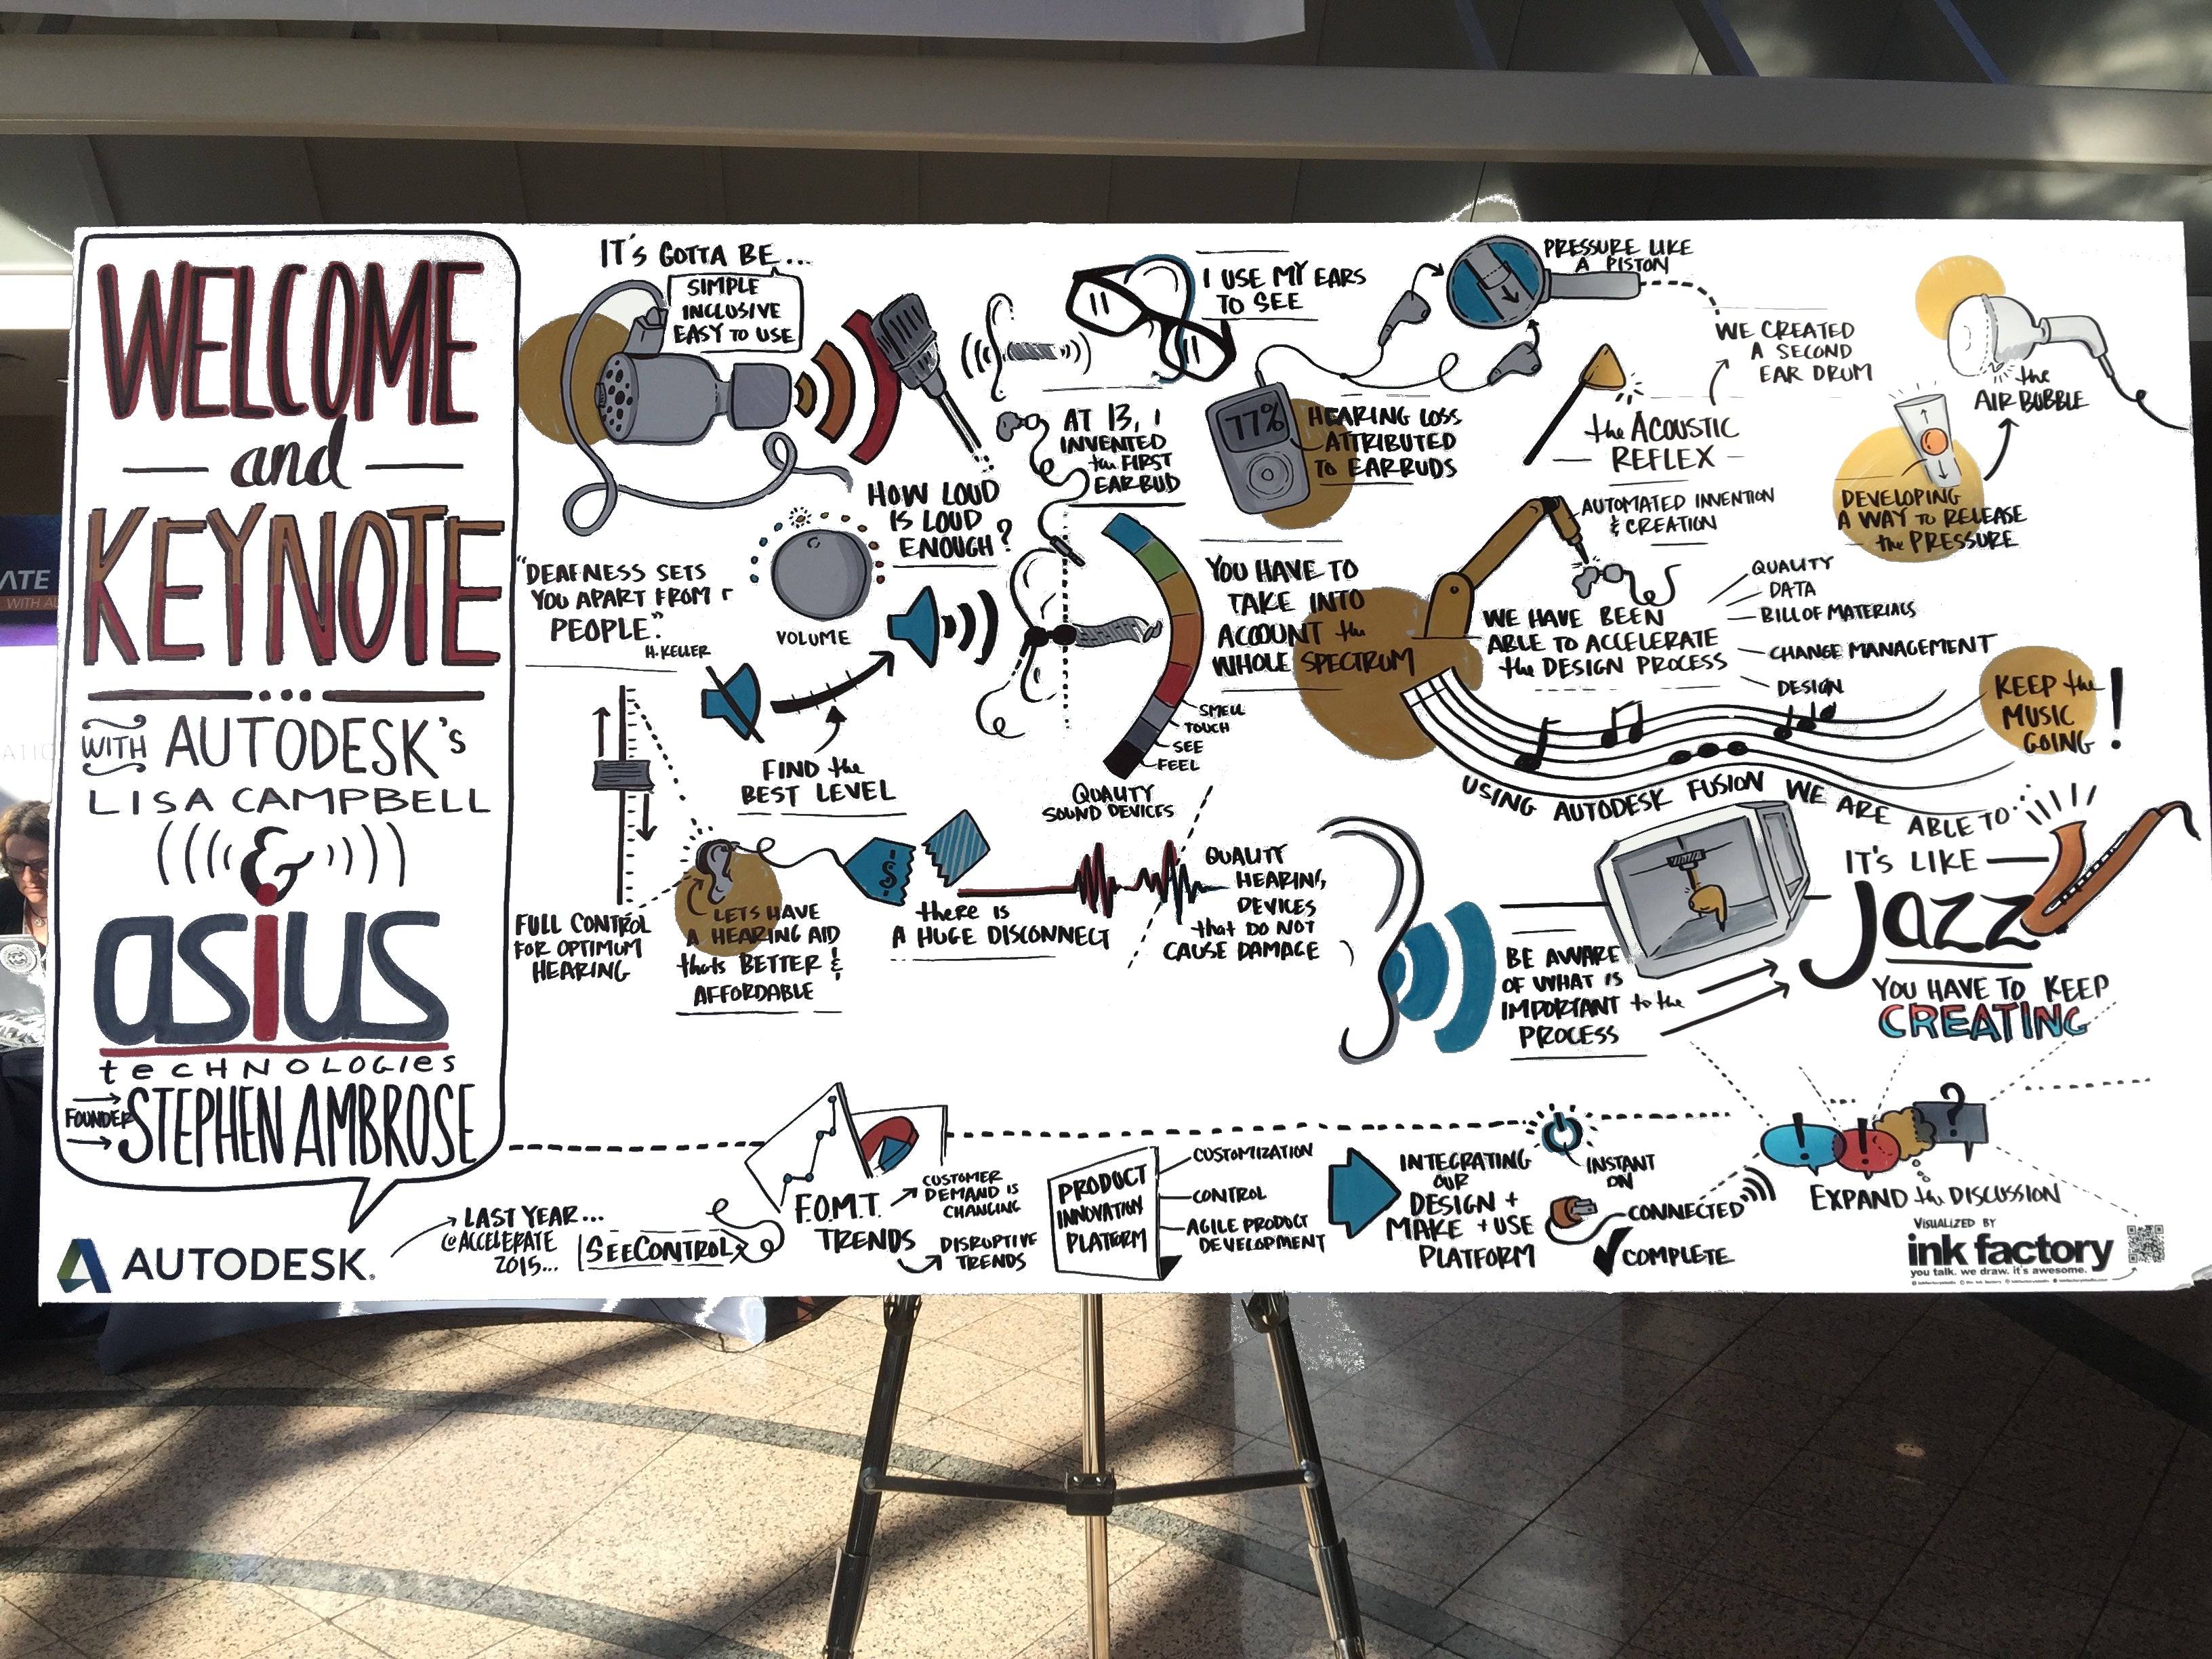 WELCOME
and
KEYNOTE
WITH AUTODESK's
LISA CAMPBELL
&
asius
tecHNOLOGIes
FOUNDER STEPHEN AMBROSE
AUTODESK.
IT'S GOTTA BE...
SIMPLE
INCLUSIVE
EASY TO USE
"DEAFNESS SETS
YOU APART FROM
PEOPLE".
H. KELLER
VOLUME
HOW LOUD
IS LOUD
ENOUGH?
FIND the
BEST LEVEL
FULL CONTROL
FOR OPTIMUM
HEARING
LETS HAVE
A HEARING AID
thats BETTER &
AFFORDABLE
$
there IS
A HUGE DISCONNECT
I USE MY EARS
TO SEE
AT 13, I
INVENTED
the FIRST
EARBUD
77%
HEARING LOSS
ATTRIBUTED
TO EARBUDS
YOU HAVE TO
TAKE INTO
ACCOUNT the
WHOLE SPECTRUM
SMELL
TOUCH
SEE
FEEL
QUALITY
SOUND DEVICES
QUALITY
HEARING
DEVICES
that DO NOT
CAUSE DAMAGE
PRESSURE LIKE
A PISTON
WE CREATED
A SECOND
EAR DRUM
the ACOUSTIC
REFLEX
the
AIR BUBBLE
DEVELOPING
A WAY TO RELEASE
the PRESSURE
AUTOMATED INVENTION
& CREATION
WE HAVE BEEN
ABLE TO ACCELERATE
the DESIGN PROCESS
QUALITY
DATA
BILL OF MATERIALS
CHANGE MANAGEMENT
DESIGN
KEEP the
MUSIC
GOING!
USING AUTODESK FUSION WE ARE ABLE TO...
IT'S LIKE
Jazz
YOU HAVE TO KEEP
CREATING
BE AWARE
OF WHAT IS
IMPORTANT to the
PROCESS
LAST YEAR...
@ACCELERATE
2015...
SEECONTROL
F.O.M.T.
TRENDS
CUSTOMER
DEMAND IS
CHANGING
DISRUPTIVE
TRENDS
PRODUCT
INNOVATION
PLATFORM
CUSTOMIZATION
CONTROL
AGILE PRODUCT
DEVELOPMENT
INTEGRATING
OUR
DESIGN +
MAKE + USE
PLATFORM
INSTANT
ON
CONNECTED
COMPLETE
! ! ?
EXPAND the DISCUSSION
VISUALIZED BY
ink factory
you talk. we draw. it's awesome.
ATE
WITH AU